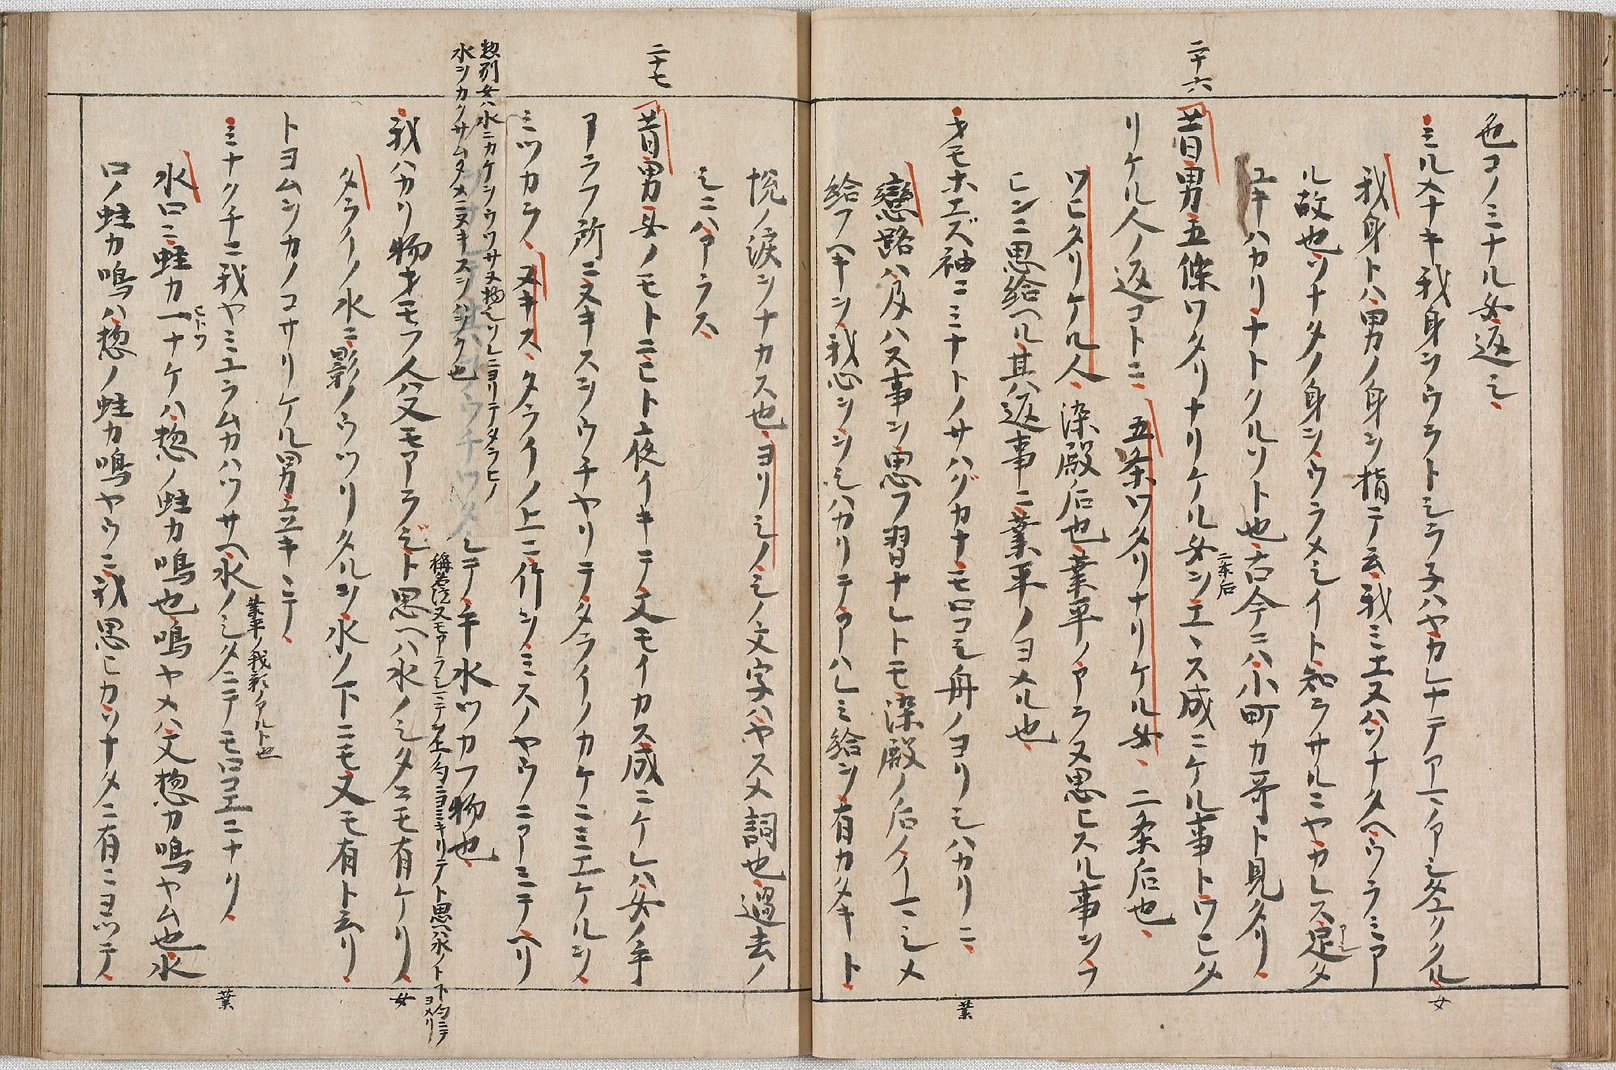 色コノミナル女返シ
ミルメナキ我身ヲウラトシラネハヤカレナテアマノアシタユククル
女
我身トハ男ノ身ヲ指テ云我ミエヌハソナタヘウラミア
ル故也ソナタノ身ヲウラメシイト知ラサルニヤカレス足タ
ユキハカリナトクルソト也古今ニハ小町カ哥ト見タリ
二十六
昔男五條ワタリナリケル女ヲエヽス成ニケル事トワヒタ
二条后
リケル人ノ返コトニ 五条ワタリナリケル女、二条后也
ワヒタリケル人 染殿后也業平ノアラヌ思ヒスル事ヲフ
ヒンニ思給ヘル其返事ニ業平ノヨメル也
オモホエズ袖ニミナトノサハグカナモロコシ舟ノヨリシハカリニ
業
戀路ハ及ハヌ事ヲ思フ習ナレトモ染殿ノ后ノイトシメ
給フヘキヲ我心ヲシハカリテアハレミ給ヲ有カタキト
悦ノ涙ヲナカス也ヨリシノシノ文字ハヤスメ詞也過去ノ
シニハアラス
二十七
昔男女ノモトニヒト夜イキテ又モイカス成ニケレハ女ノ手
アラフ所ニヌキスヲウチヤリテタライノカケニミエケルヲ
ミツカラ、ヌキス、タライノ上ニ竹ヲミスノヤウニアミテヘリ
惣別女ハ水ニカケヲウツサヌ物也ソレニヨリテタラヒノ
水ヲカクサムタメニヌキスヲシク也
シテノ手水ツカフ物也
我ハカリ物オモフ人ハ又モアラジト思ヘハ水ノシタニモ有ケリ
女
タライノ水ニ影ノウツリタルヲ水ノ下ニモ又モ有ト云リ
トヨムヲカノコサリケル男立キヽテ
ミナクチニ我ヤミエラムカハツサヘ水ノシタニテモロコエニナリ
業平ノ我影ノアルト也
業
水口ニ蛙カ一ナケハ惣ノ蛙カ鳴也鳴ヤメハ又惣カ鳴ヤム也水
ヒトツ
口ノ蛙カ鳴ハ惣ノ蛙カ鳴ヤウニ我思ヒカソナタニ有ニヨツテ